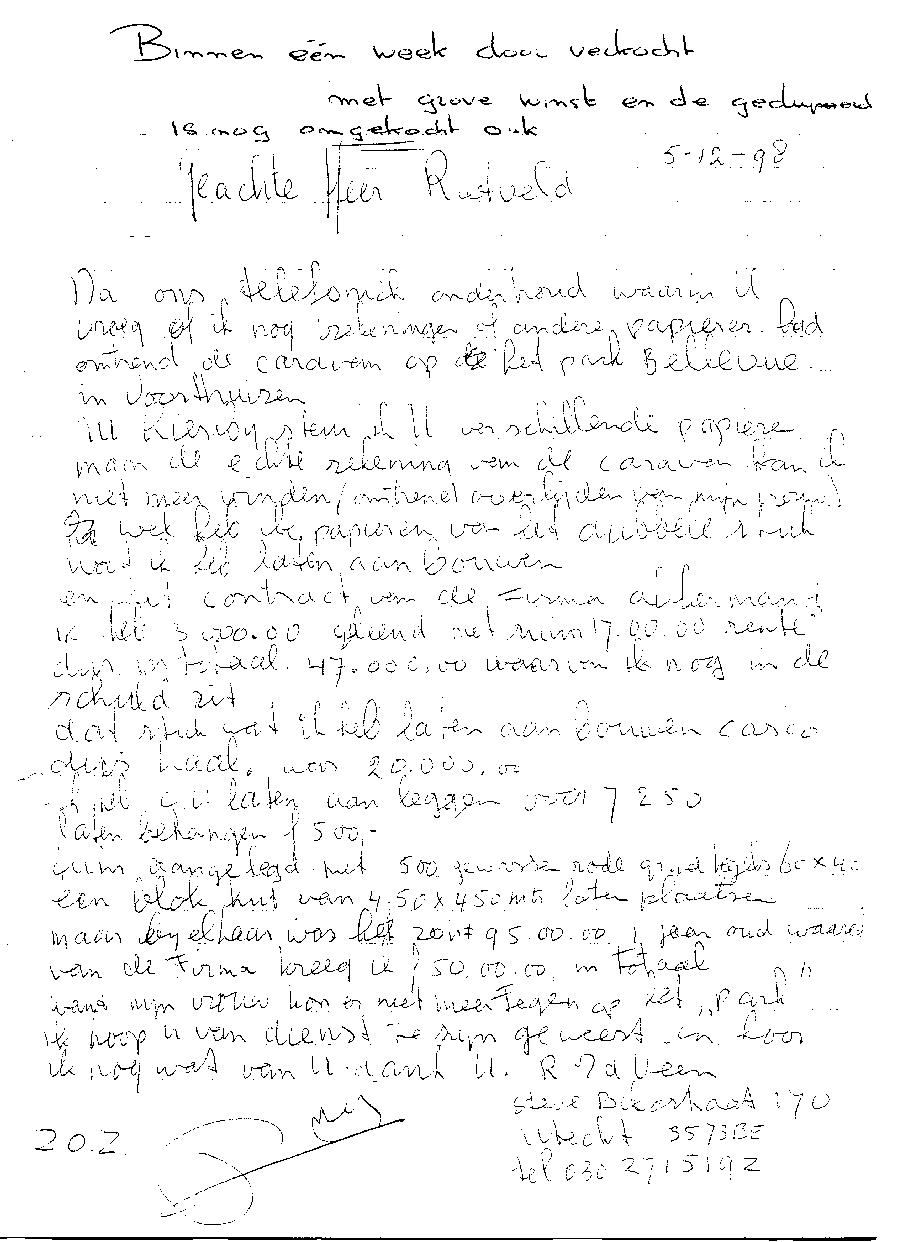 Binnen één week door verkocht
met grove winst en de gedupeerd
is nog omgekocht ook
5-12-98
Geachte Heer Rustveld
Na ons telefonich onderhoud waarin U
vroeg of ik nog rekeningen of andere papieren had
omtrend de caravan op het park Bellevue
in Voorthuizen
stem ik U verschillende papiere
maar de echte rekening van de caravan kan ik
niet meer vinden (omtrent overlijden van mijn vrouw)
wel heb ik papieren van het dubbele stuk
wat ik heb laten aan bouwen
en het contract van de Firma
ik heb 3.000.00 geleend met ruim 17.00.00 rente
dus in totaal 47.000.00 waarvan ik nog in de
schuld zit
dat stuk wat ik heb laten aan bouwen casco
dus kaal. voor 20.000.00
laten aan leggen voor 7250
laten behangen f 500,-
tuin aangelegd met 500 gewassen rode grindtegels 60x40
een blok hut van 4.50x450 mtr laten plaatsen
maar bij elkaar was het 95.00.00 1 jaar oud waarde
van de Firma kreeg ik f 50.00.00 in totaal
want mijn vrouw kon er niet meer tegen op het "park"
ik hoop U van dienst te zijn geweest en hoor
ik nog wat van U dank U. R vd Veen
Steve Bikostraat 170
Utrecht 3573BE
tel 030 2715192
Z.O.Z.